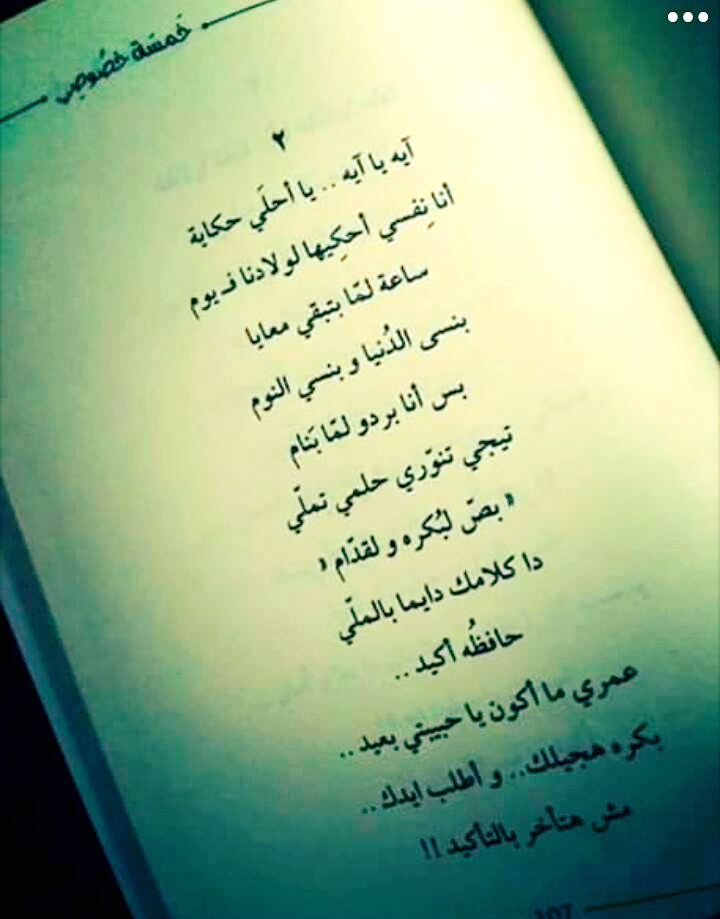 خَمسَة خصُوصِي
٢
آيه يا آيه .. يا أحلَي حكاية
أنا نِفسي أحكِيها لولادنا فـ يوم
ساعة لمّا بتبقي معايا
بنسى الدُنيا و بنسي النوم
بس أنا بردو لمّا بَنام
تيجي تنوّري حلمي تملّي
" بصّ لبُكره و لقدّام "
دا كلامك دايما بالملّي
حافظُه أكيد ..
عمري ما أكون يا حبيبتي بعيد ..
بكره هجيلك .. و أطلب ايدك ..
مش هتأخر بالتأكيد !!
107